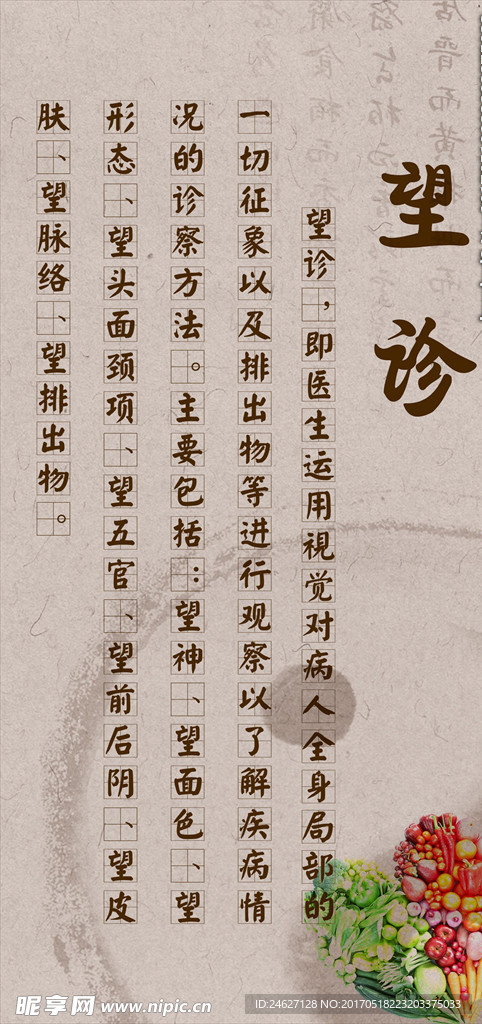 望诊
望诊,即医生运用视觉对病人全身局部的
一切征象以及排出物等进行观察以了解疾病情
况的诊察方法。主要包括:望神、望面色、望
形态、望头面颈项、望五官、望前后阴、望皮
肤、望脉络、望排出物。
昵享网 www.nipic.cn
ID:24627128 NO:20170518223203375033